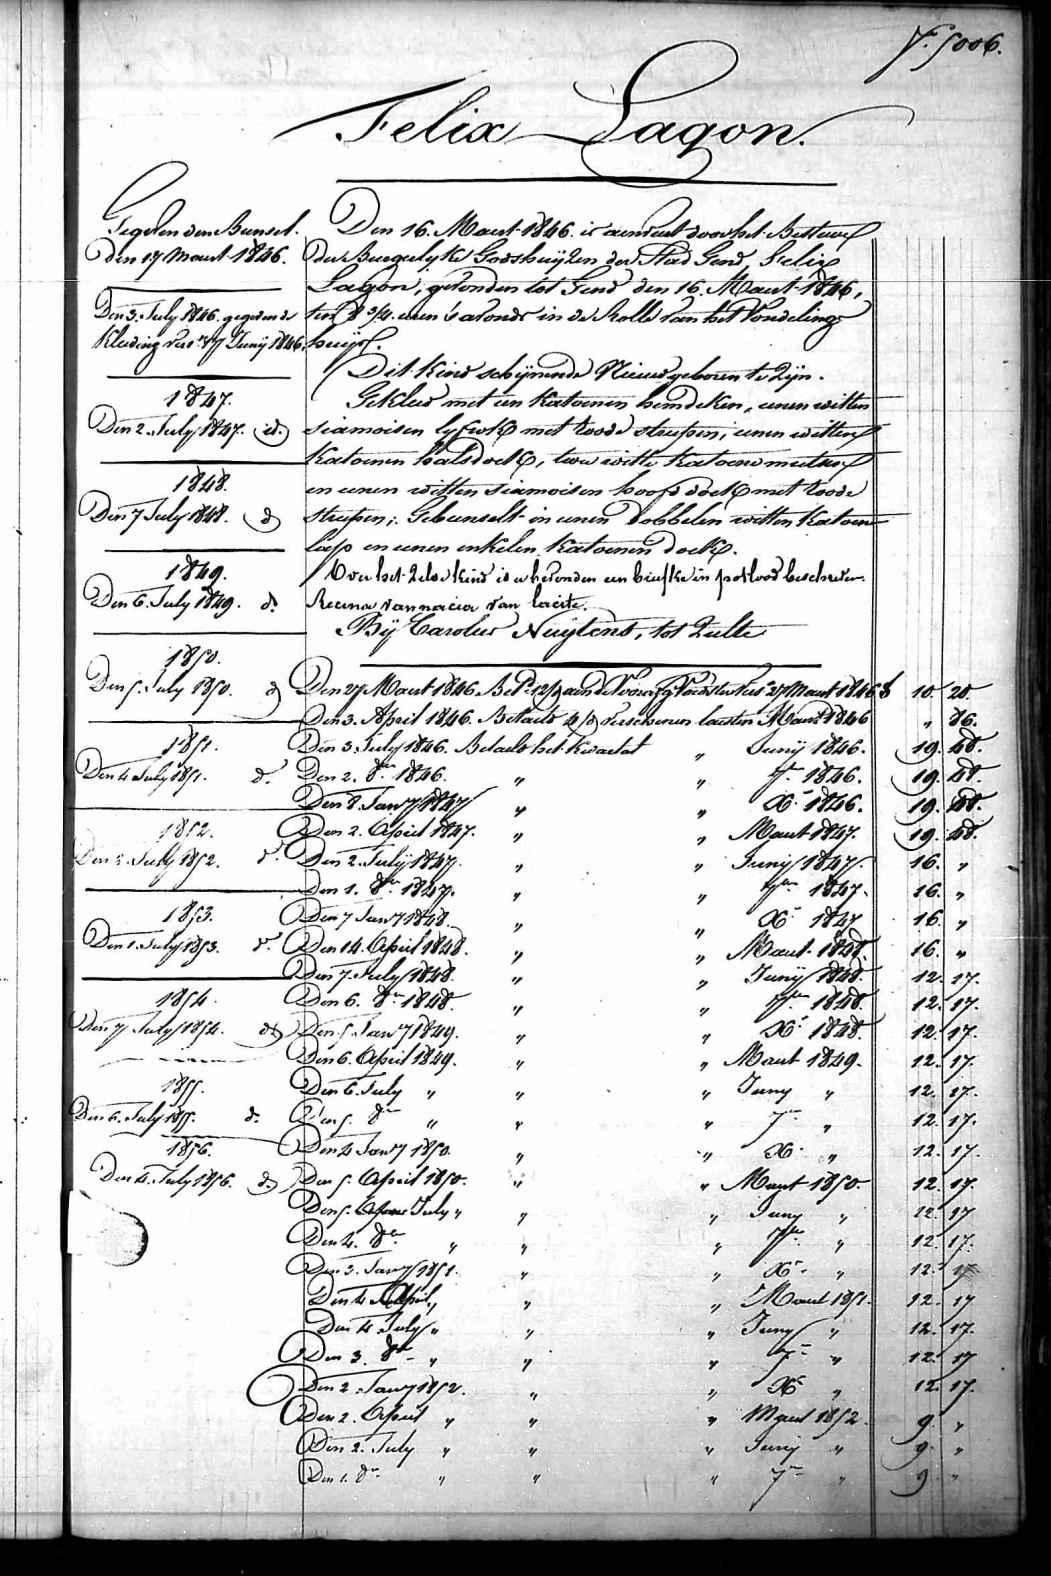 F. 5006.
Felix Lagon.
Gegeven den Bunsel.
den 17 Maart 1846.
Den 3. July 1846. gegeven de
Kleeding van Juny 1846.
1847.
Den 2. July 1847. id.
1848.
Den 7 July 1848. d.
1849.
Den 6. July 1849. d.
1850.
Den 5. July 1850. d.
1851.
Den 4. July 1851. d.
1852.
Den 2. July 1852. d.
1853.
Den 1. July 1853. d.
1854.
Den 7 July 1854. d.
1855.
Den 6. July 1855. d.
1856.
Den 4. July 1856. d.
Den 16. Maart 1846. is aenveert door het Bestuur
der Burgerlyke Godshuyzen der Stad Gend, Felix
Lagon, gevonden tot Gend den 16. Maart 1846,
ten 8 3/4 uren 's avonds in de Rolle van het Vondeling
huys.
Dit kind schynende Nieuwgeboren te zyn.
Gekleed met een katoenen hemdeken, eenen witten
siamoisen lyfrok met roode streepen, eenen witten
katoenen halsdoek, twee witte katoene mutsen
en eenen witten siamoisen hoofddoek met roode
streepen; Gebunselt in eenen dobbelen witten katoene
lap en eenen enkelen katoenen doek.
Over het zelve kind is er bevonden een briefke in potlood beschreven.
van
By Carolus Nuytens, tot Zulte
Den 27 Maart 1846. Bet. 12/ aan de 27 Maart 1846 10. 20.
Den 3. April 1846. Betaeld 4/ verschenen laasten Maart 1846 " 86.
Den 3 July 1846. Betaeld het kwartal " Juny 1846. 19. 48.
Den 2. 8er 1846. " " 7er 1846. 19. 48.
Den 8. Janry 1847 " " Xr 1846. 19. 48.
Den 2. April 1847. " " Maart 1847. 19. 48.
Den 2. July 1847. " " Juny 1847. 16. "
Den 1. 8er 1847. " " 7er 1847. 16. "
Den 7 Janry 1848. " " Xr 1847 16. "
Den 14. April 1848. " " Maart 1848. 16. "
Den 7. July 1848. " " Juny 1848. 12. 17.
Den 6. 8er 1848. " " 7er 1848. 12. 17.
Den 5. Janry 1849. " " Xr 1848. 12. 17.
Den 6. April 1849. " " Maart 1849. 12. 17.
Den 6. July " " " Juny " 12. 17.
Den 5. 8er " " " 7er " 12. 17.
Den 4 Janry 1850. " " Xr " 12. 17.
Den 5. April 1850. " " Maart 1850. 12. 17.
Den 5. July " " " Juny " 12. 17
Den 4. 8er " " " 7er " 12. 17.
Den 3. Janry 1851. " " Xr " 12. 17
Den 4 April " " " Maart 1851. 12. 17
Den 4. July " " " Juny " 12. 17.
Den 3. 8er " " " 7er " 12. 17
Den 2. Janry 1852. " " Xr " 12. 17.
Den 2. April " " " Maart 1852. 9. "
Den 2. July " " " Juny " 9. "
Den 1. 8er " " " 7er " 9. "